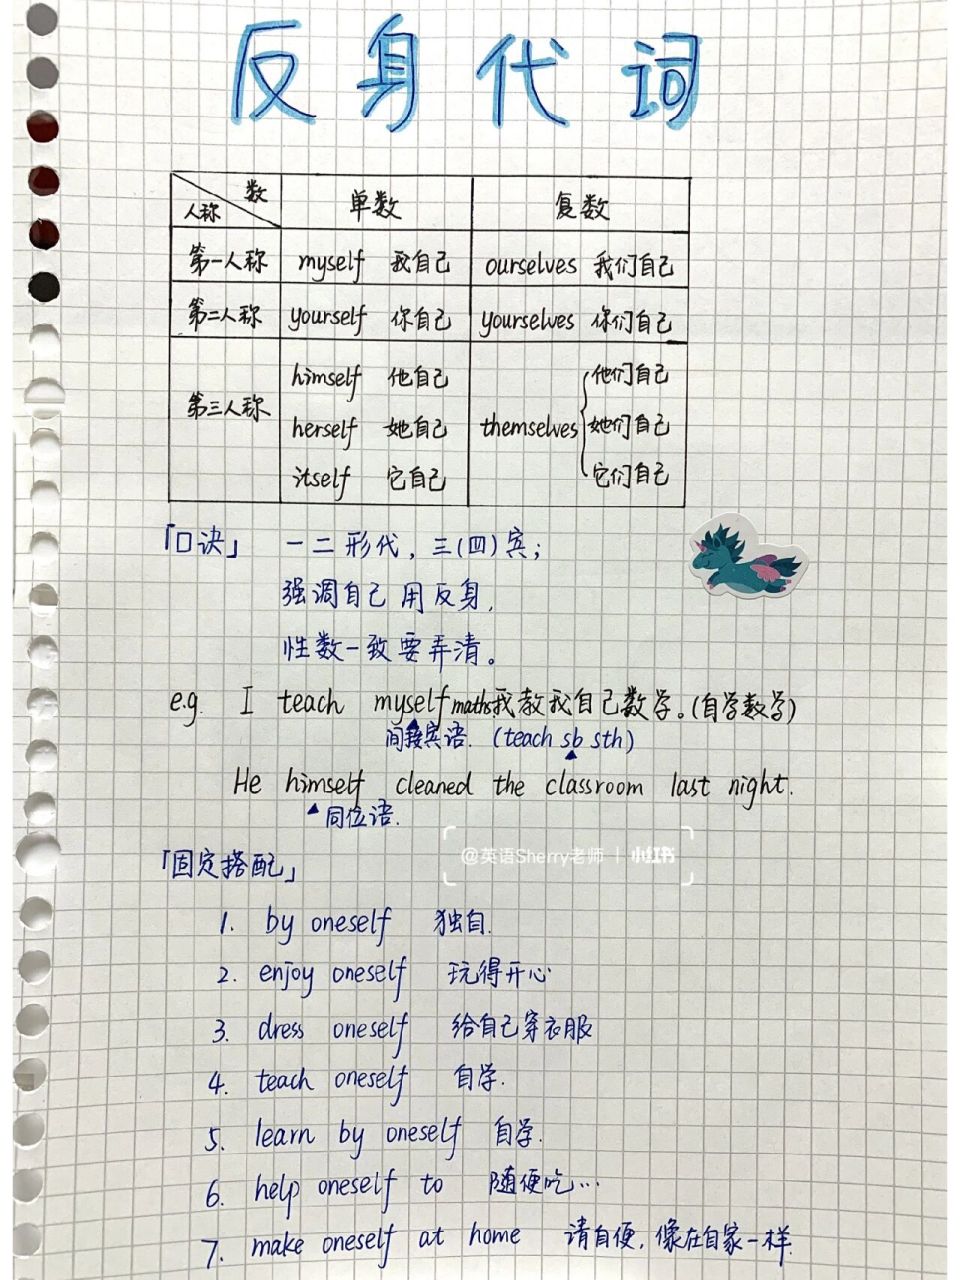 反身代词
数
人称
单数
复数
第一人称 myself 我自己 ourselves 我们自己
第二人称 yourself 你自己 yourselves 你们自己
himself 他自己 他们自己
第三人称 herself 她自己 themselves 她们自己
itself 它自己 它们自己
「口诀」 一二形代，三(四)宾；
强调自己用反身，
性数一致要弄清。
e.g. I teach myself maths.我教我自己数学。(自学数学)
间接宾语. (teach sb sth)
He himself cleaned the classroom last night.
同位语.
@英语Sherry老师 | 小红书
「固定搭配」
1. by oneself 独自.
2. enjoy oneself 玩得开心
3. dress oneself 给自己穿衣服
4. teach oneself 自学.
5. learn by oneself 自学.
6. help oneself to 随便吃…
7. make oneself at home 请自便，像在自家一样.